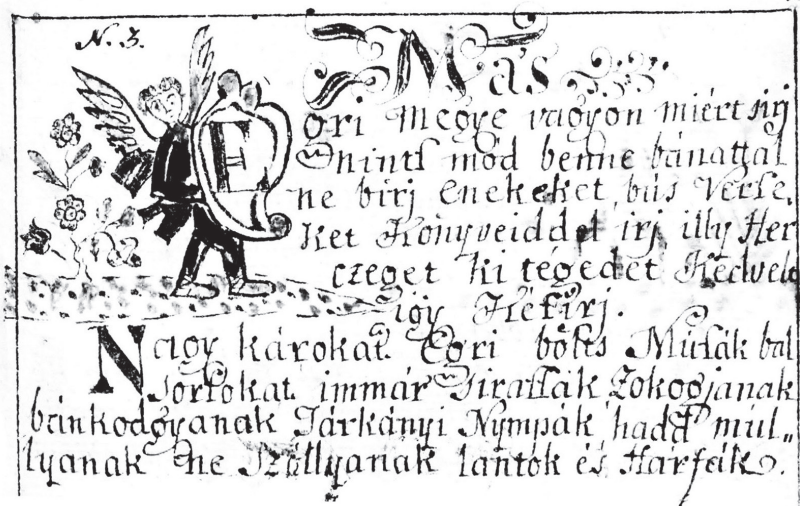 N. 3.
Más
Egri Megye vagyon miért sirj
nints mód benne bánattal
ne birj Enekeket, bús Verse,
ket Könyveiddel irj illy Her
czeget ki tégedet Kedvelt
igy Kefirj.
Nagy károkat Egri bölts Musák bal
sorsokat immár Sirassák Zokogjanak
bánkodgyanak Tárkányi Nympák, hadd mul„
lyanak ne Szóllyanak lantok és Hárfák.